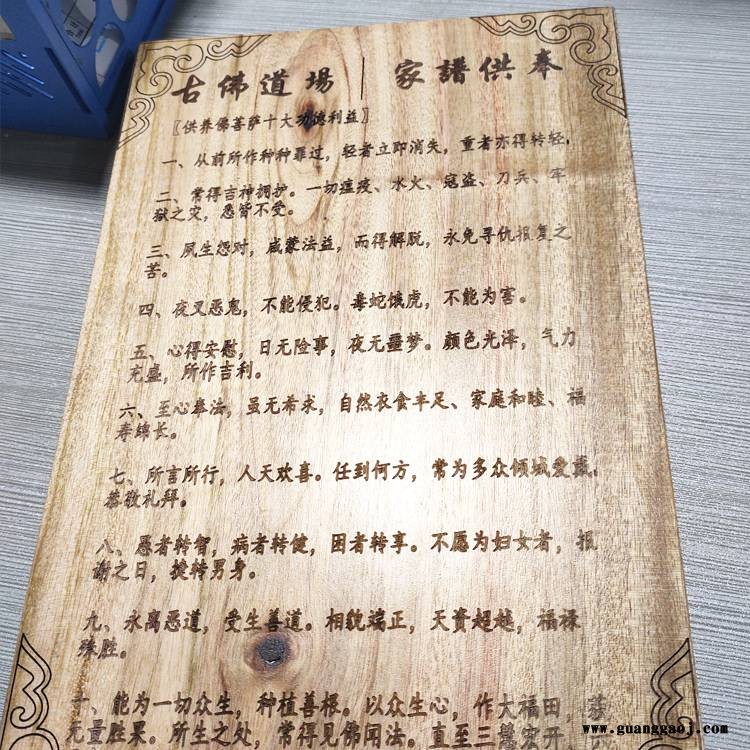 古佛道場｜家譜供奉
〖供养佛菩萨十大功德利益〗
一、从前所作种种罪过，轻者立即消失，重者亦得转轻。
二、常得吉神拥护。一切瘟疫、水火、寇盗、刀兵、牢
狱之灾，悉皆不受。
三、夙生怨对，咸蒙法益，而得解脱，永免寻仇报复之
苦。
四、夜叉恶鬼，不能侵犯。毒蛇饿虎，不能为害。
五、心得安慰，日无险事，夜无噩梦。颜色光泽，气力
充盛，所作吉利。
六、至心奉法，虽无希求，自然衣食丰足、家庭和睦、福
寿绵长。
七、所言所行，人天欢喜。任到何方，常为多众倾城爱戴，
恭敬礼拜。
八、愚者转智，病者转健，困者转亨。不愿为妇女者，报
谢之日，捷转男身。
九、永离恶道，受生善道。相貌端正，天资超越，福禄
殊胜。
十、能为一切众生，种植善根。以众生心，作大福田，获
无量胜果。所生之处，常得见佛闻法。直至三慧宏开
www.guanggaoj.com